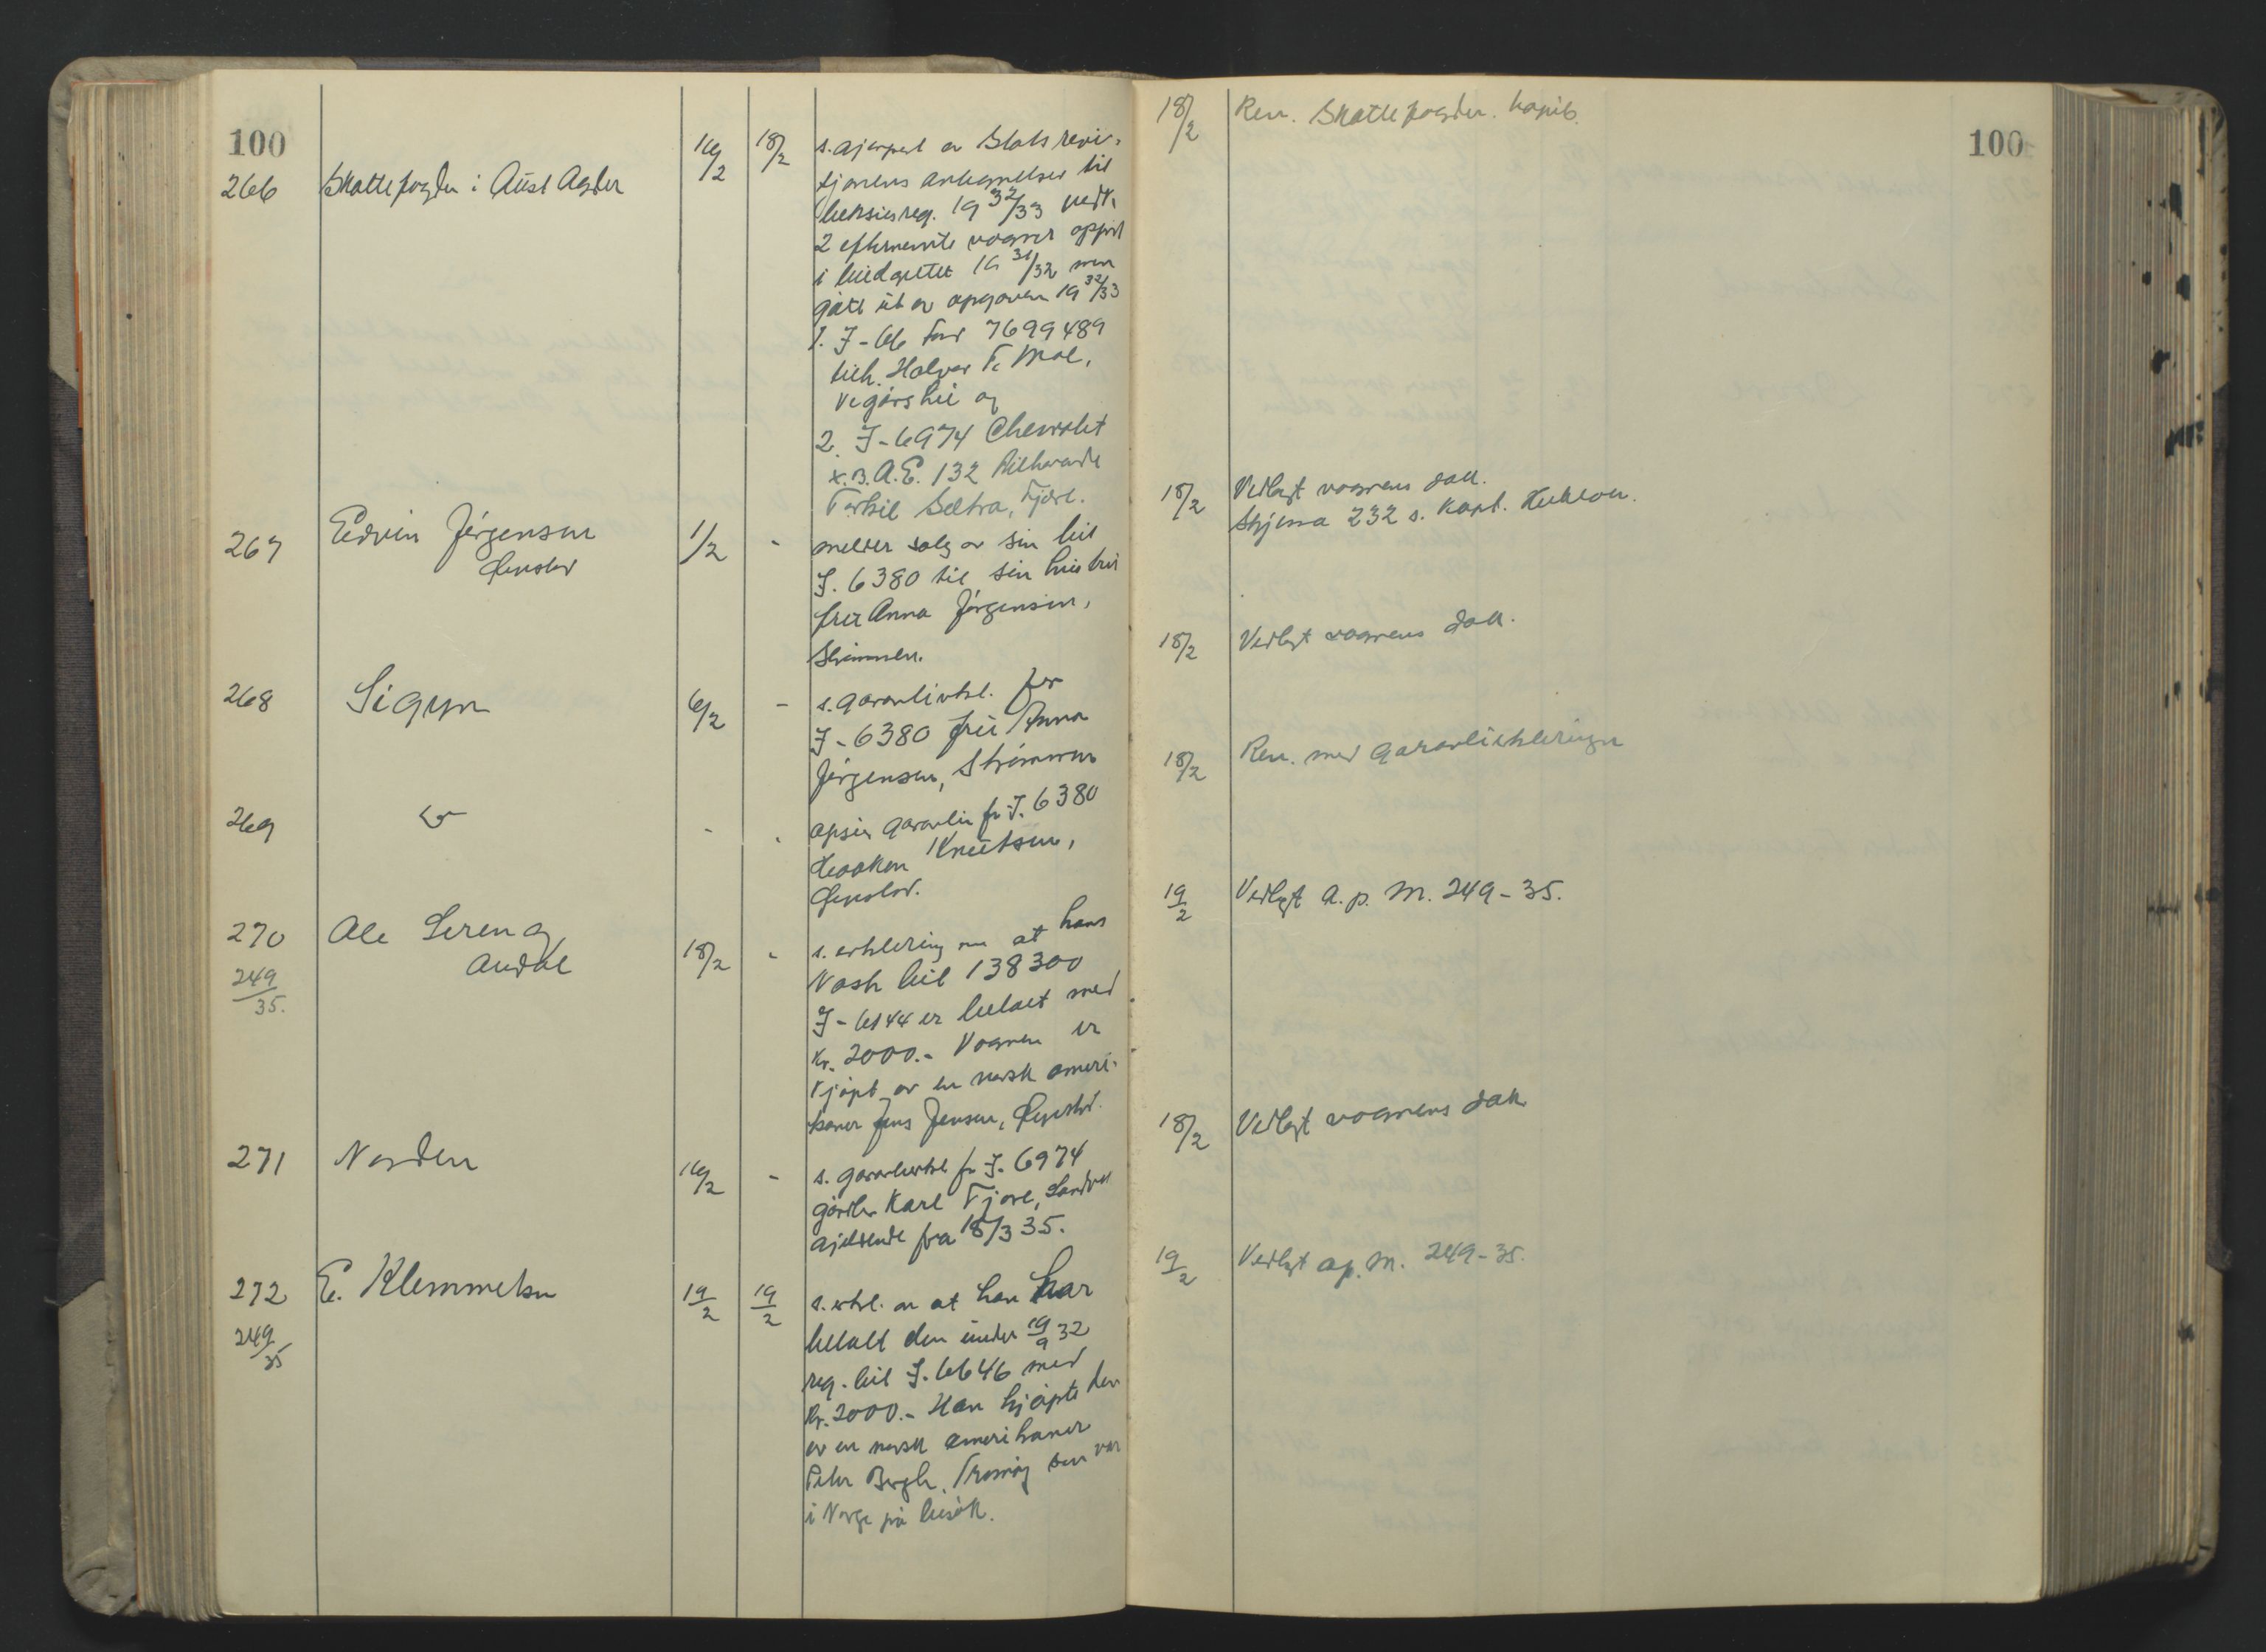 100
266 Skattefogden i Aust Agder 16/2 18/2 s. gjenpart av Statsrevi-
sjonens antegnelser til
19 32/33 vedk.
2 efternevnte vogner oppført
i budgettet 19 31/32 men
gått ut av opgaven 19 32/33
1. I-66 Ford 7699489
tilh. Halvor T. Mo
Vegårshei og
2. I-6974 Chevrolet
A.E. 132 tilhørende
Torkil Sætra, Fjære.
267 Edvin Jørgensen 1/2 - melder salg av sin bil
Grimstad I. 6380 til sin hustru
fru Anna Jørgensen,
Strømmen.
268 Sigyn 6/2 - s. garantierkl. for
I-6380 fru Anna
Jørgensen, Strømmen
269 do - - opsier garantien for I. 6380
Haakon Knutsen,
Grimstad.
270 Ole Sereng 18/2 - s. erklæring om at hans
249/35. Nash bil 138300
I-6144 er betalt med
Kr. 2000.- Vognen er
kjøpt av en norsk ameri-
kaner Jens Jensen, Grimstad.
271 Norden 16/2 - s. garantierkl. for I. 6974
gårdbr. Karl Fjære, Landvik
gjeldende fra 18/3 35.
272 E. Klemmetsen 19/2 19/2 s. erkl. om at han har
249/35 betalt den under 19/9 32
reg. bil I. 6646 med
Kr. 2000.- Han kjøpte den
av en norsk amerikaner
Peter Bergh, Tromøy som var
i Norge på besøk.
100
18/2 Ren. Skattefogden. kopib.
18/2 Vedlagt vognens dok.
Skjema 232 s.
18/2 Vedlagt vognens dok.
18/2 Ren. med garantierklæringen
19/2 Vedlagt A. p. M. 249-35.
18/2 Vedlagt vognens dok.
19/2 Vedlagt ap. M. 249-35.